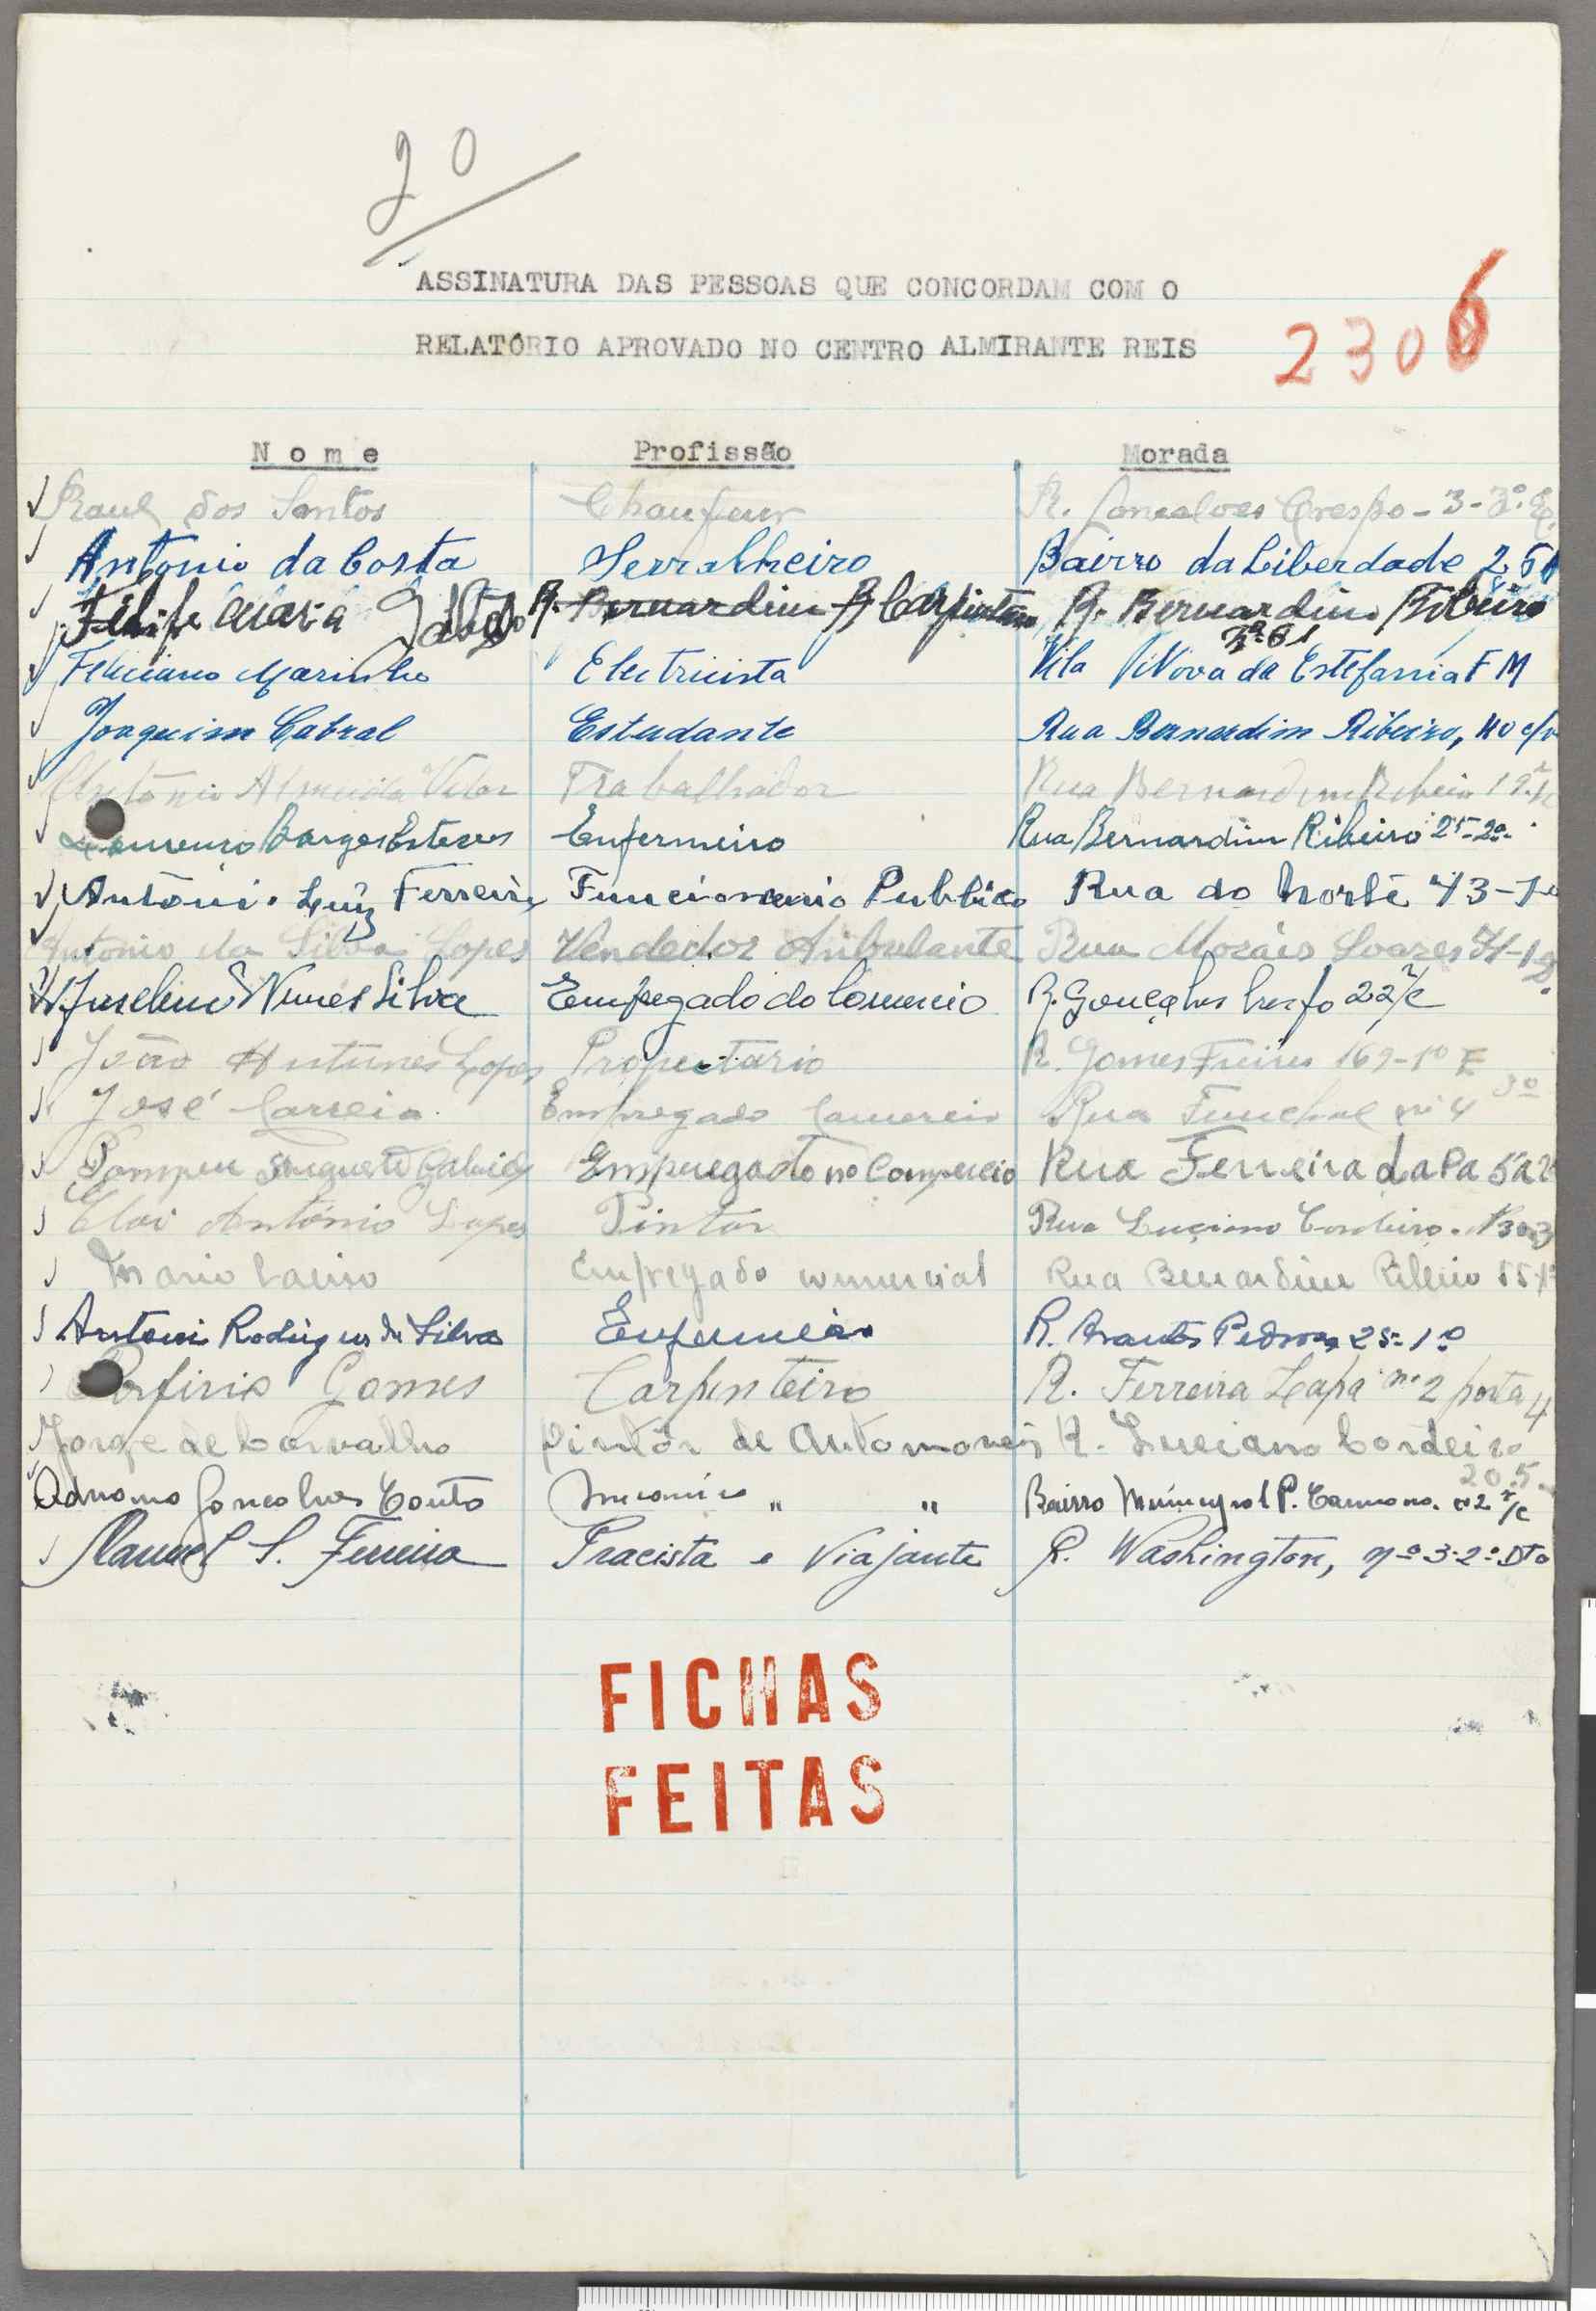 20
ASSINATURA DAS PESSOAS QUE CONCORDAM COM O
RELATÓRIO APROVADO NO CENTRO ALMIRANTE REIS
2306
Nome Profissão Morada
Raul dos Santos Chaufeur R. Goncalves Crespo - 3 - 3º. E.
Antonio da Costa Serralheiro Bairro da Liberdade
Felife R. Bernardim R. Bernardim Ribeiro
Nº 61
Feliciano Marinho Eletricista Vila Nova da Estefania F M
Joaquim Cabral Estudante Rua Bernardim Ribeiro, 40 c/v
António Almeida Trabalhador Rua Bernardim Ribeiro
Lourenço Borges Esteves Enfermeiro Rua Bernardim Ribeiro 25-2º.
António Luiz Ferreira Funcionario Publico Rua do Norte 43-1º
Antonio da Silva Lopes Vendedor Anbulante Rua Moráis Soares
Juselino Nunes Silva Empregado do Comercio R. Gonçalves Crespo 22 r/c
João Antunes Lopes Propietario R. Gomes Freires 169-1º E
José Correia Empregado Comercio Rua Funchal nº 4 3º
Pompeu Empregado no Comercio Rua Ferreira Lapa
Eloi António Lopes Pintor Rua Luciano Cordeiro.
Mario Empregado comercial Rua Bernardim Ribeiro 55
Antonio Rodrigues da Silva Enfermeiro R. Arantes Pedroso 25-1º
Porfirio Gomes Carpenteiro R. Ferreira Lapa nº 2 porta 4
Jorge de Carvalho Pintôr de Automoveis R. Luciano Cordeiro
20.5.
Gonçalves Couto Mecanico " " Bairro Municipal P. r/c
Manuel S. Ferreira Pracista e Viajante R. Washington, nº 3-2º Dto
FICHAS
FEITAS